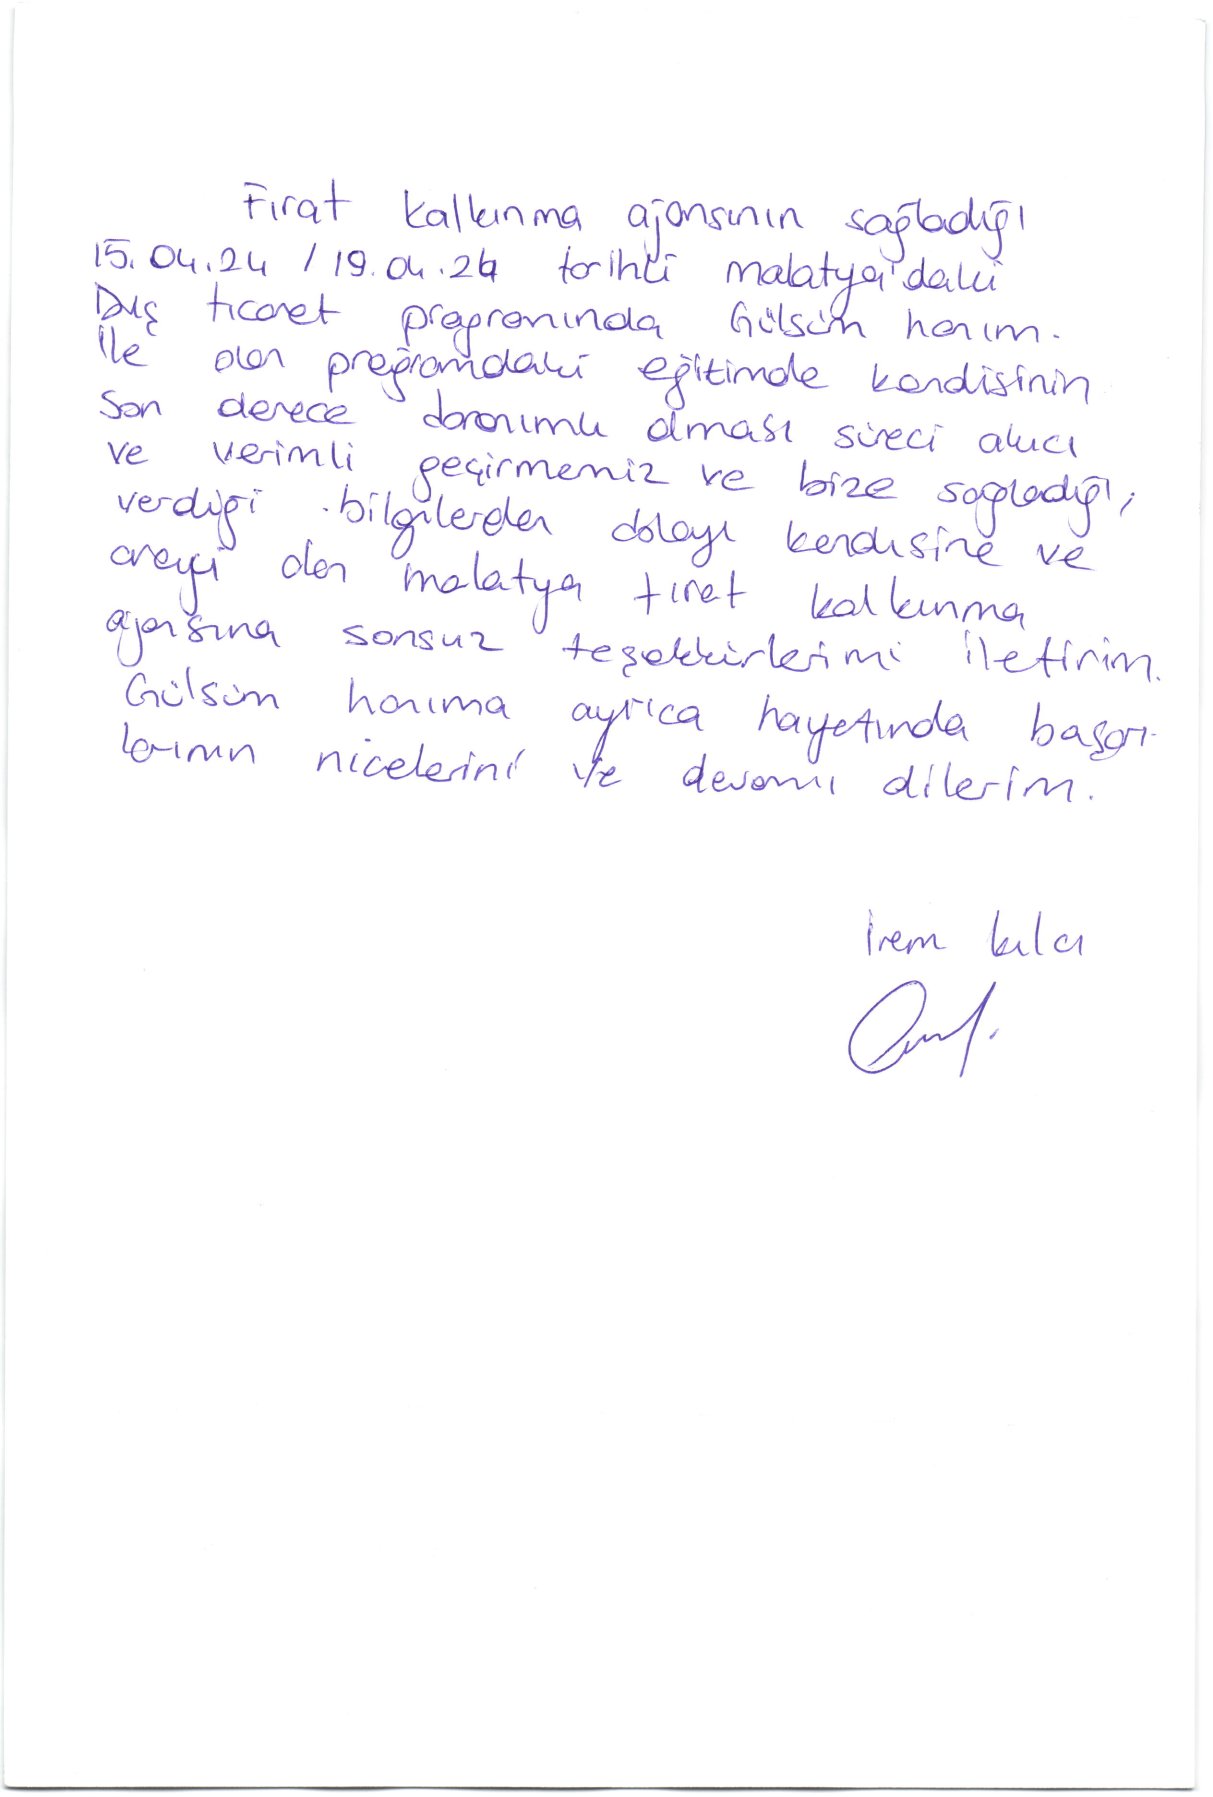 Fırat kalkınma ajansının sağladığı
15.04.24 / 19.04.24 tarihli malatya'daki
Dış ticaret programında Gülsüm hanım.
ile olan programdaki eğitimde kendisinin
son derece donanımlı olması süreci akıcı
ve verimli geçirmemiz ve bize sağladığı,
verdiği bilgilerden dolayı kendisine ve
aracı olan malatya fırat kalkınma
ajansına sonsuz teşekkürlerimi iletirim.
Gülsüm hanıma ayrıca hayatında başarı-
larının nicelerini ve devamı dilerim.
İrem kılcı